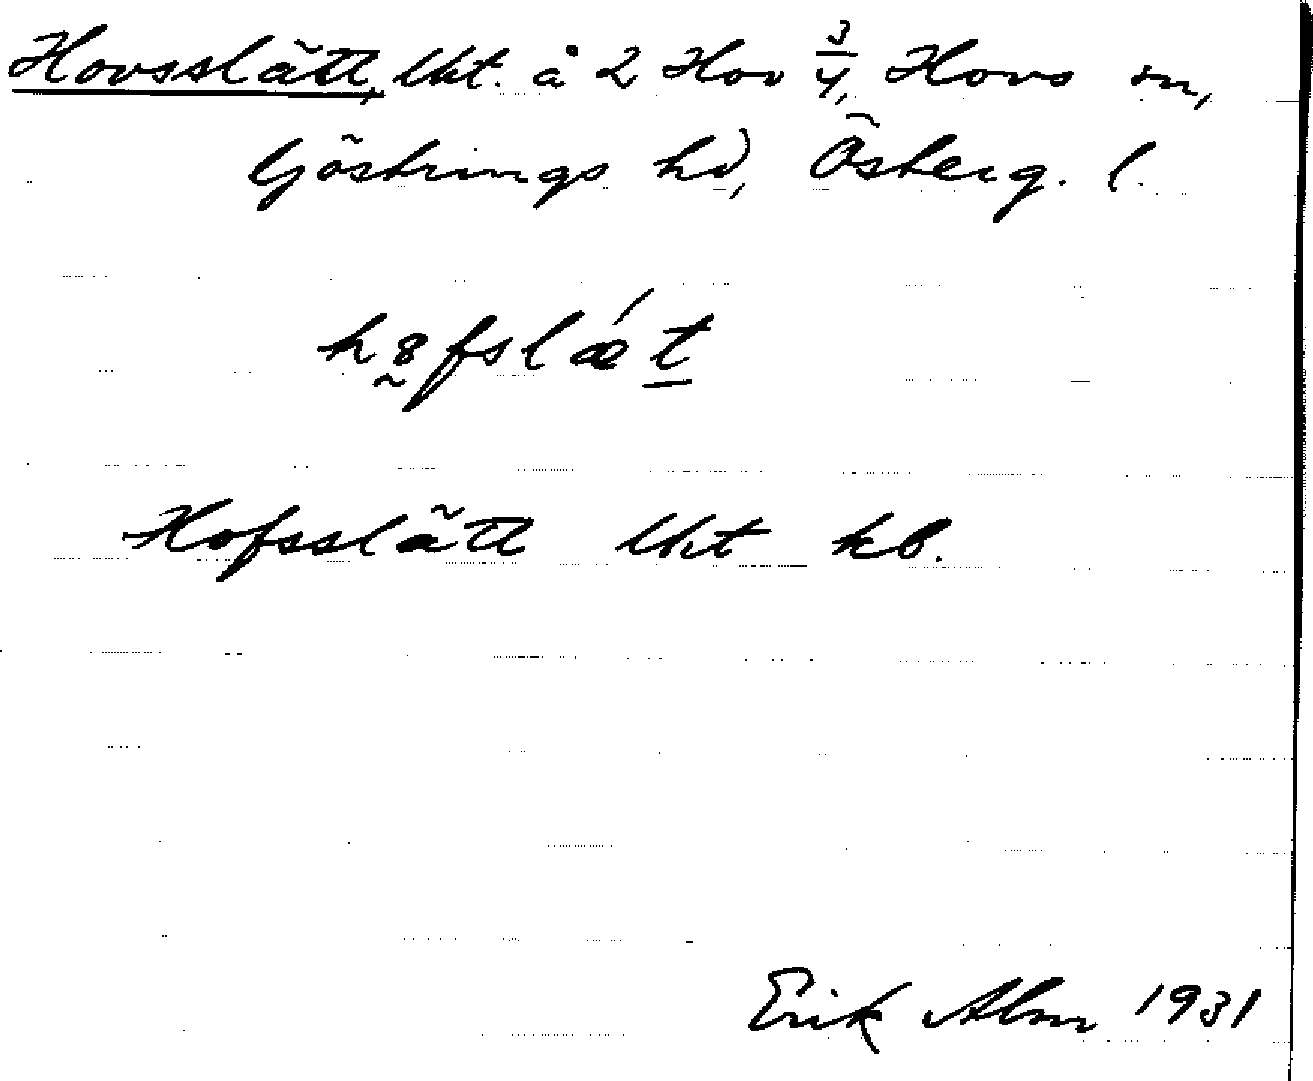 Hovsslätt, lht. å 2 Hov 3/4, Hovs sn,
Göstrings hd, Österg. l.
hofslǽt
Hofsslätt lht kb.
Erik Alm 1931